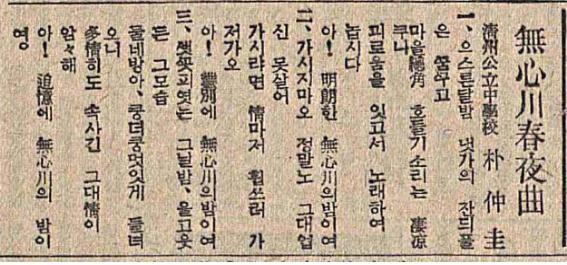 無心川春夜曲
淸州公立中學校 朴仲圭
一、으스른달밤 냇가의 잔듸풀
은 꿈꾸고
호들기소리는 凄凉
쿠나
괴로움을 잇고서 노래하여
놉시다
아! 明朗한 無心川의밤이여
二、가시지마오 정말노 그대업
신 못살어
가시라면 情마저 휩쓰러 가
저가오
아! 離別에 無心川의밤이여
三、벗꽃피엿든 그날밤、울고웃
든 그모습
물네방아、쿵더쿵멋잇게 들녀
오니
多情히도 속사긴 그대情이
암々해
아! 追憶에 無心川의 밤이
여